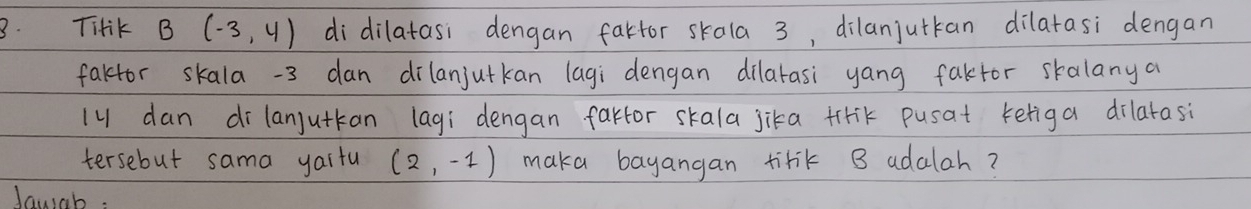 3. Titik B (-3, 4) di dilatasi dengan faktor skala 3, dilanjutkan dilatasi dengan
faktor skala -3 dan dilanjutkan lagi dengan dilatasi yang faktor skalanya
14 dan di lanjutkan lagi dengan faktor skala jika titik pusat ketiga dilatasi
tersebut sama yaitu (2, -1) maka bayangan titik B adalah ?
Jawab :